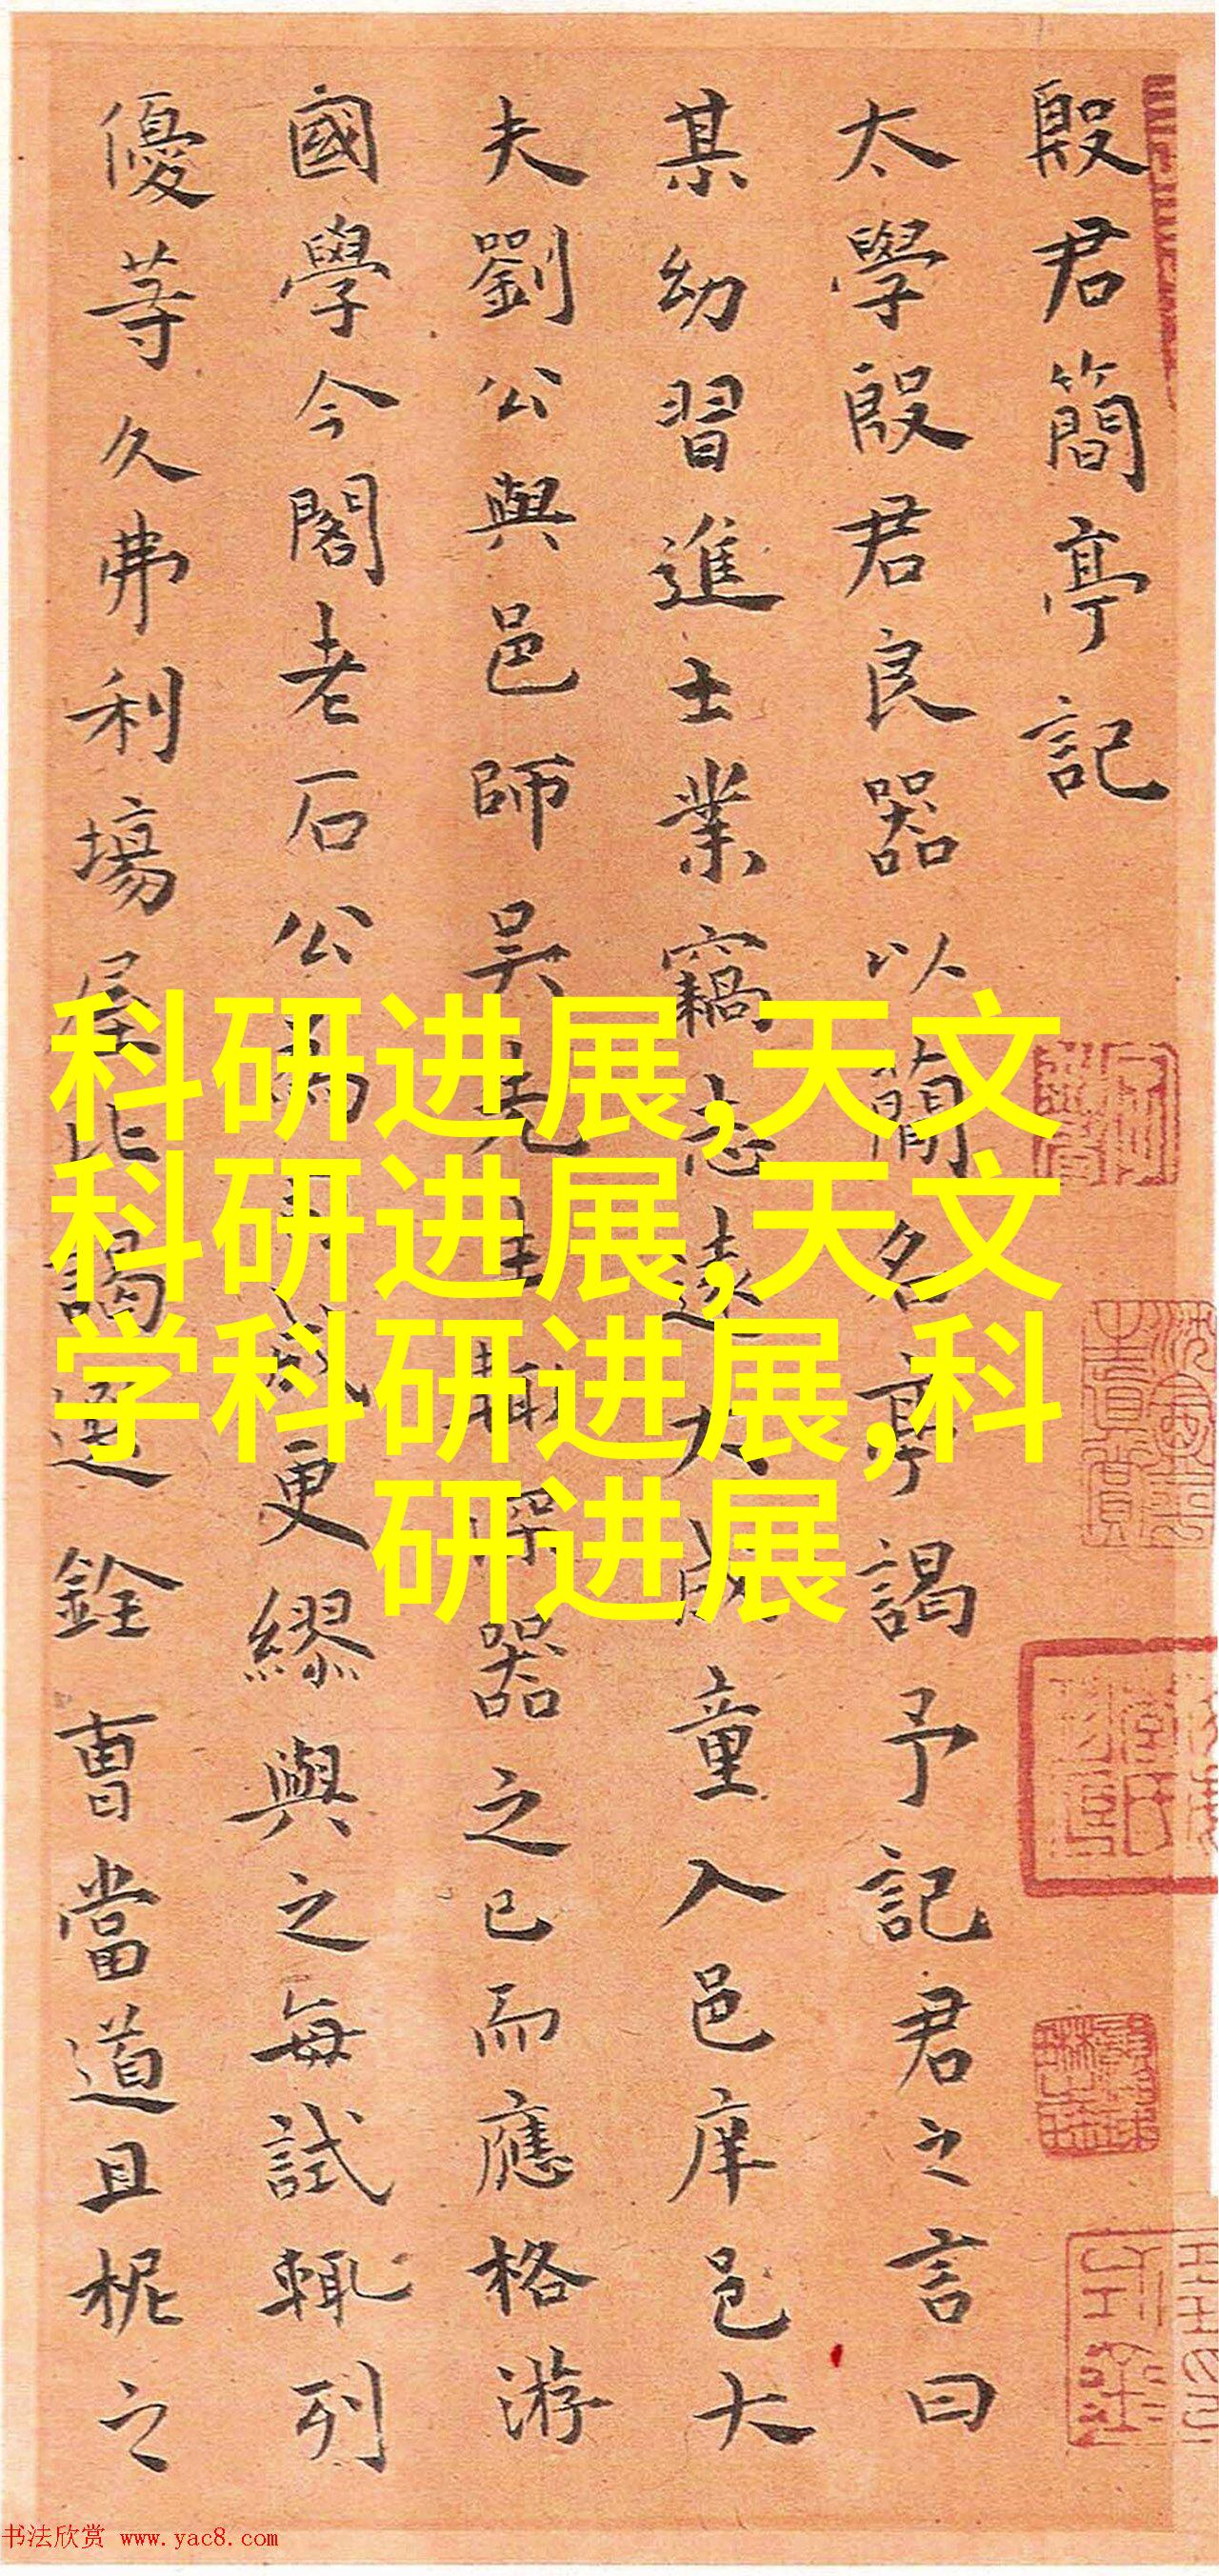 殷君簡亭記
太學殷君良器以簡名亭謁予記君之言曰
某幼習進士業竊志遠大成童入邑庠邑大
夫劉公與邑師吳先生聃深器之已而應格游
國學今閣老石公為司成更繆與之每試輒列
優等久弗利場屋比謁選銓曹當道且柅之
科研进展,天文
科研进展,天文
学科研进展,科
研进展
书法欣赏 www.yac8.com